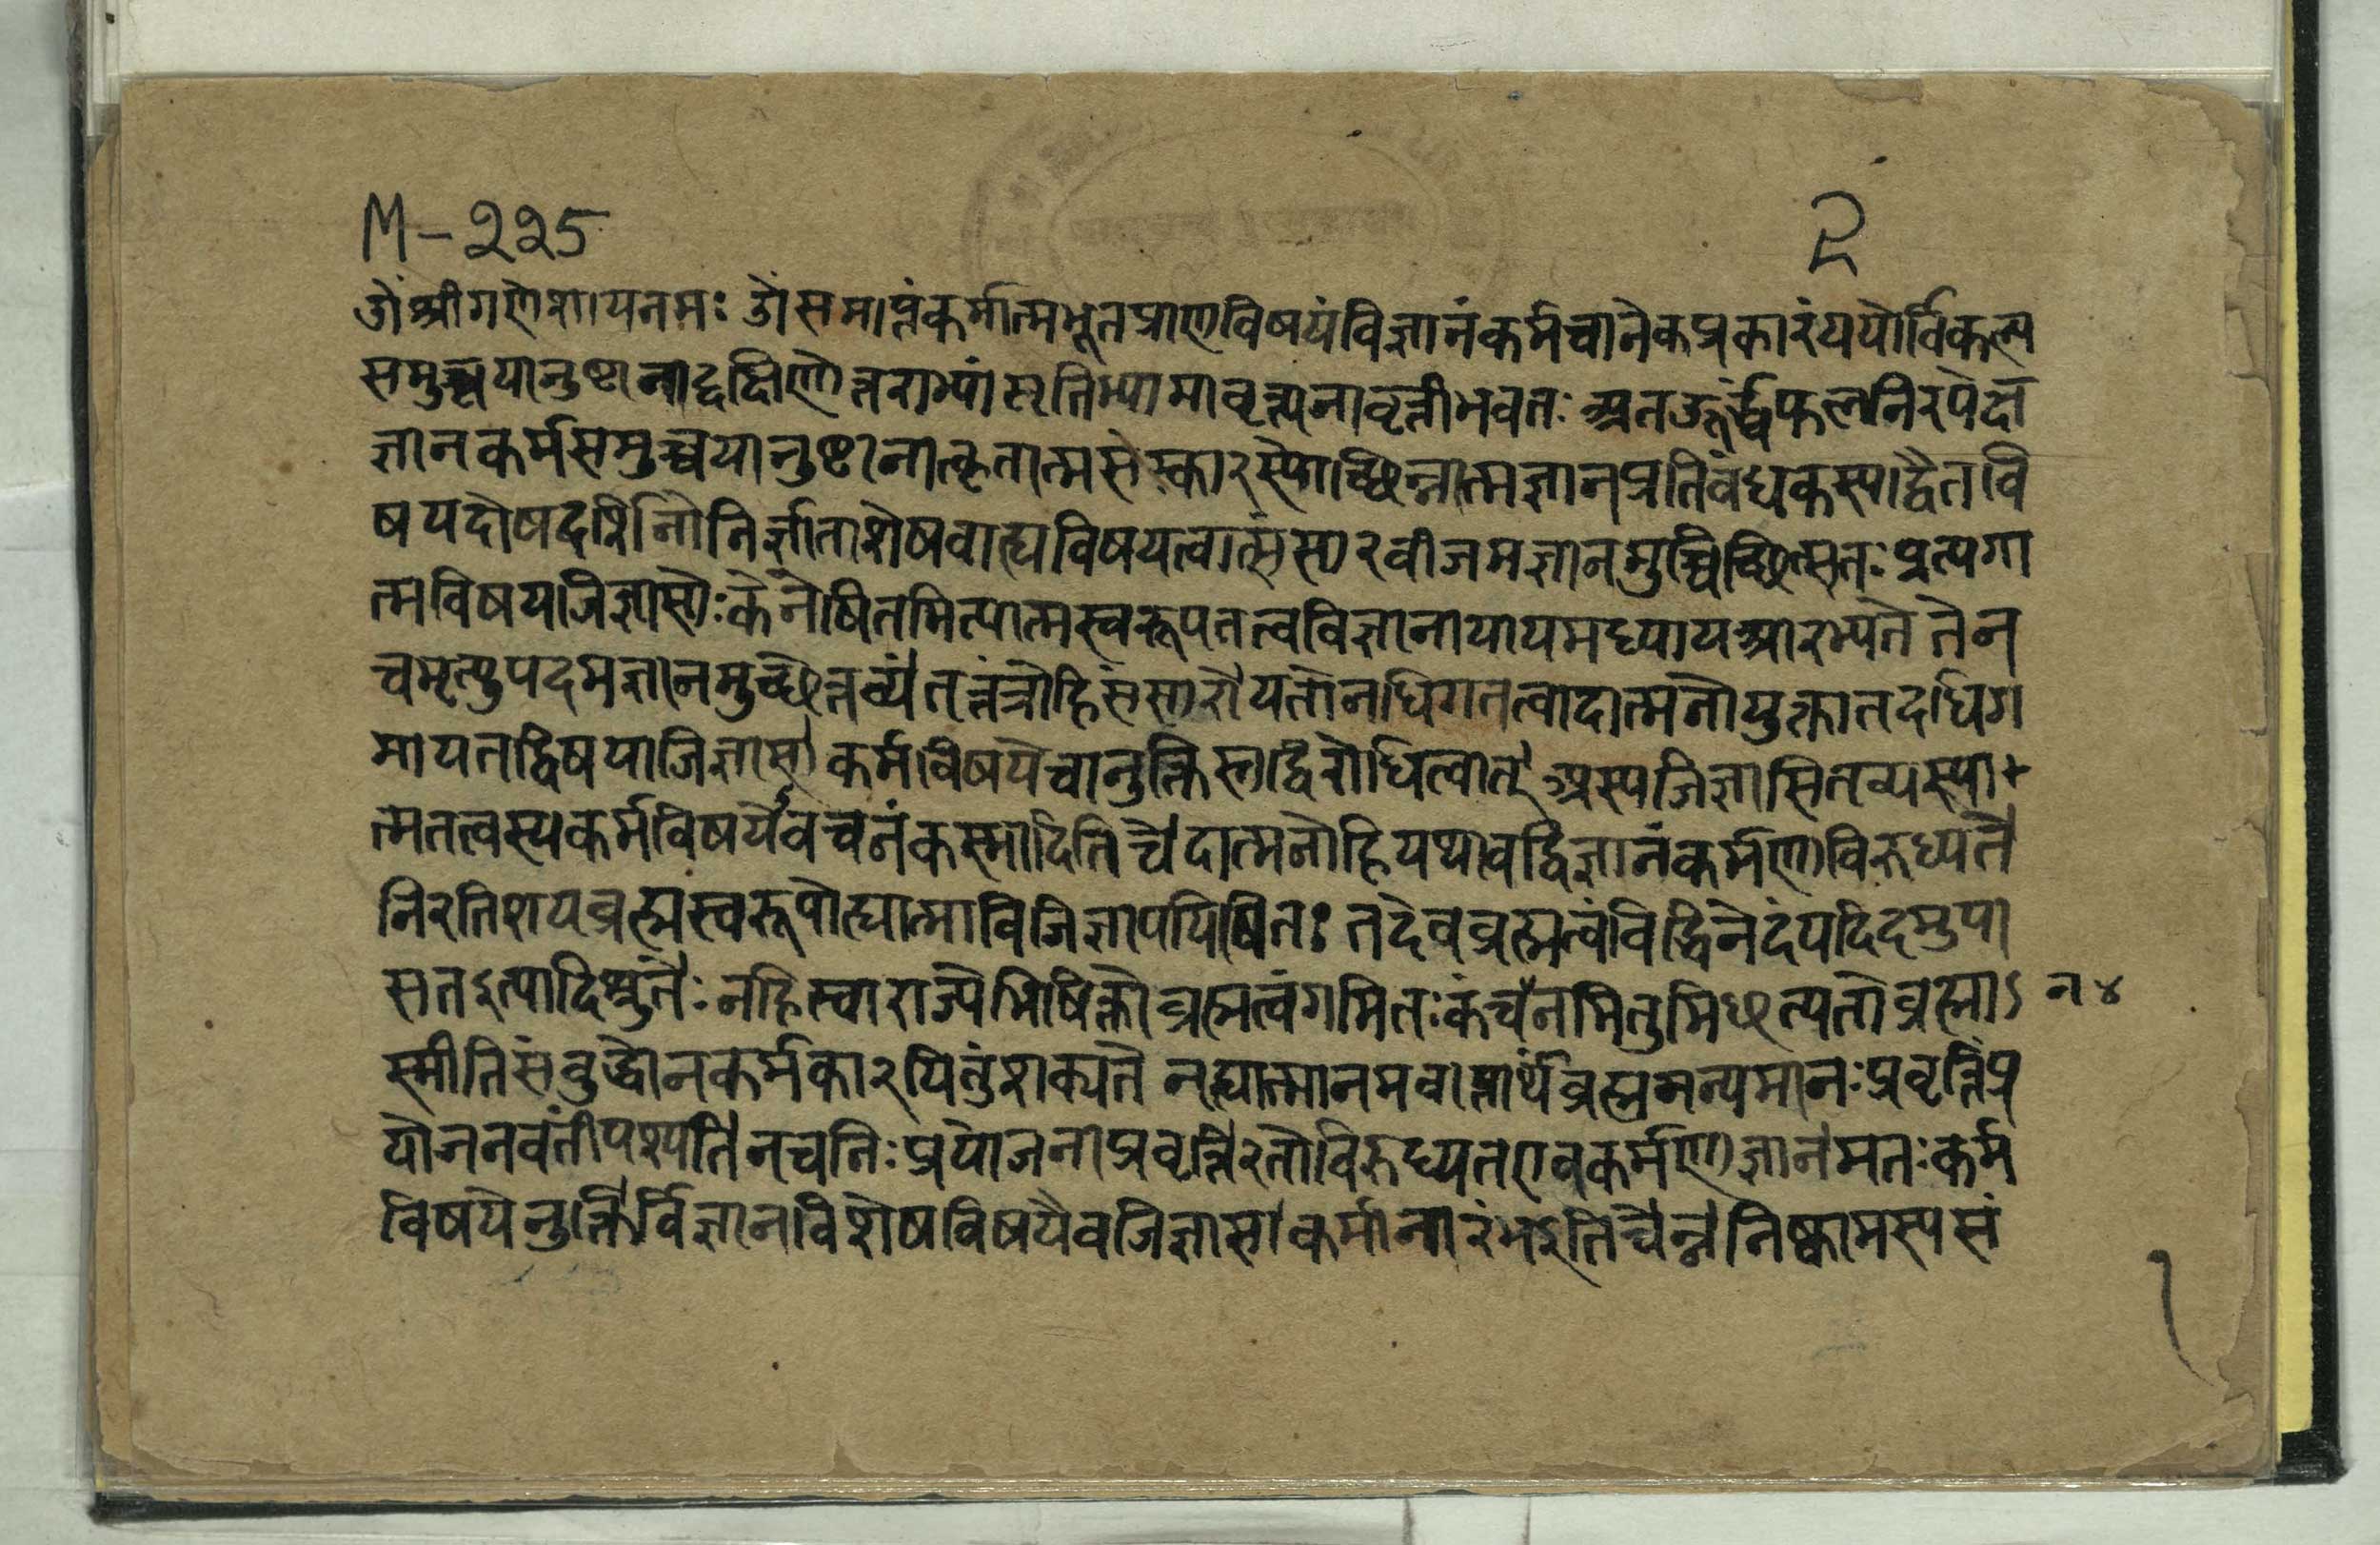 M-225
२
ॐ श्रीगणेशायनमः ॐ समाप्तंकर्मात्मभूतप्राणविषयंविज्ञानंकर्मचानेकप्रकारंययोर्विकल्प
समुच्चयानुष्टानाद्दक्षिणोत्तराभ्यांसृतिभ्यामावृत्त्यनावृत्तीभवतः अतऊर्द्ध्वंफलनिरपेक्ष
ज्ञानकर्मसमुच्चयानुष्टानात्कृतात्मसंस्कारस्योच्छिन्नात्मज्ञानप्रतिबंधकस्यद्वैतवि
षयदोषदर्शिनोनिर्ज्ञाताशेषबाह्यविषयत्वात्संसारबीजमज्ञानमुच्चिच्छित्सतः प्रत्यगा
त्मविषयजिज्ञासोः केनेषितमित्यात्मस्वरूपतत्वविज्ञानायायमध्यायआरभ्यते तेन
चमृत्युपदमज्ञानमुच्छेत्तव्यं तत्तंत्रोहिसंसारोयतोनधिगतत्वादात्मनोयुक्तातदधिग
मायतद्विषयाजिज्ञासा कर्मविषयेचानुक्तिस्तद्विरोधित्वात् अस्यजिज्ञासितव्यस्या
त्मतत्वस्यकर्मविषयेवचनंकस्मादितिचेदात्मनोहियथावद्विज्ञानंकर्मणाविरुध्यते
निरतिशयब्रह्मस्वरूपोह्यात्माविजिज्ञापयिषितः तदेवब्रह्मत्वंविद्धिनेदंयदिदमुपा
सतइत्यादिश्रुतेः नहिस्वाराज्येभिषिक्तोब्रह्मत्वंगमितः कंचनमितुमिछत्यतोब्रह्मा ऽ न ४
स्मीतिसंबुद्धोनकर्मकारयितुंशक्यते नह्यात्मानमवाप्तार्थंब्रह्ममन्यमानः प्रवृत्तिंप्र
योजनवतींपश्यति नचनिःप्रयोजनाप्रवृत्तिरतोविरुध्यतएवकर्मणाज्ञानमतः कर्म
विषयेनुक्तिर्विज्ञानविशेषविषयैवजिज्ञासा कर्मानारंभइतिचेन्ननिष्कामस्यसं
१